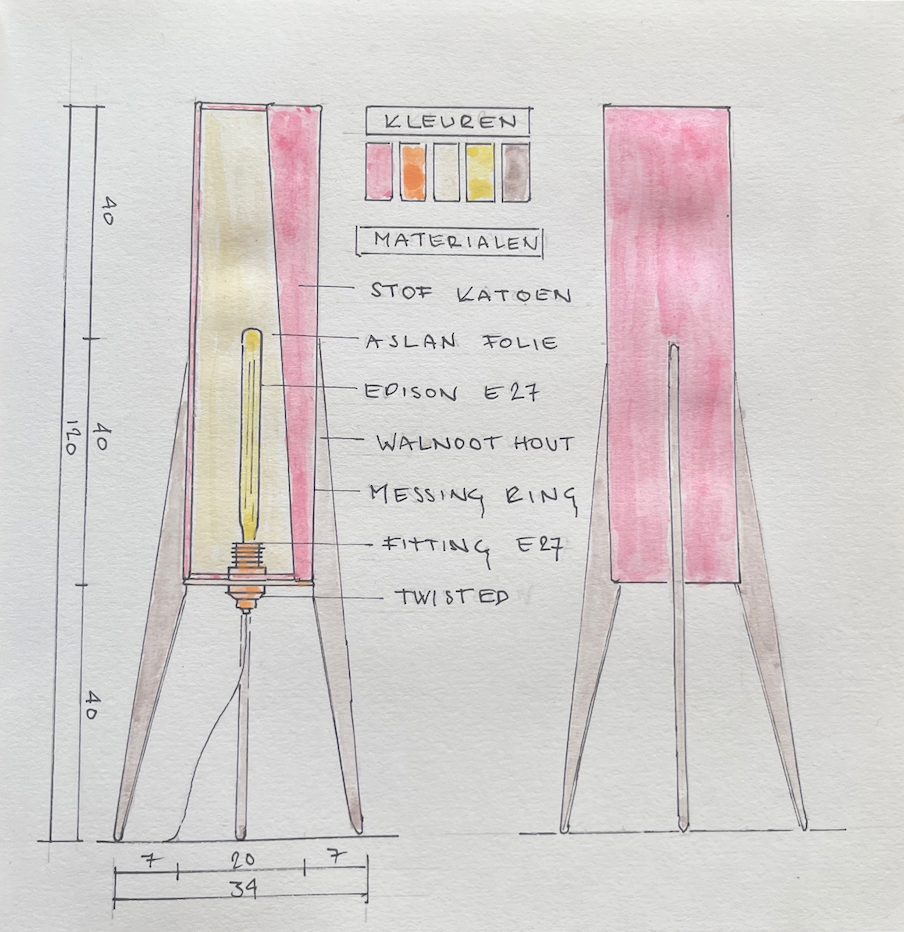 KLEUREN
MATERIALEN
STOF KATOEN
ASLAN FOLIE
EDISON E27
WALNOOT HOUT
MESSING RING
FITTING E27
TWISTED
40
120
40
40
7 20 7
34